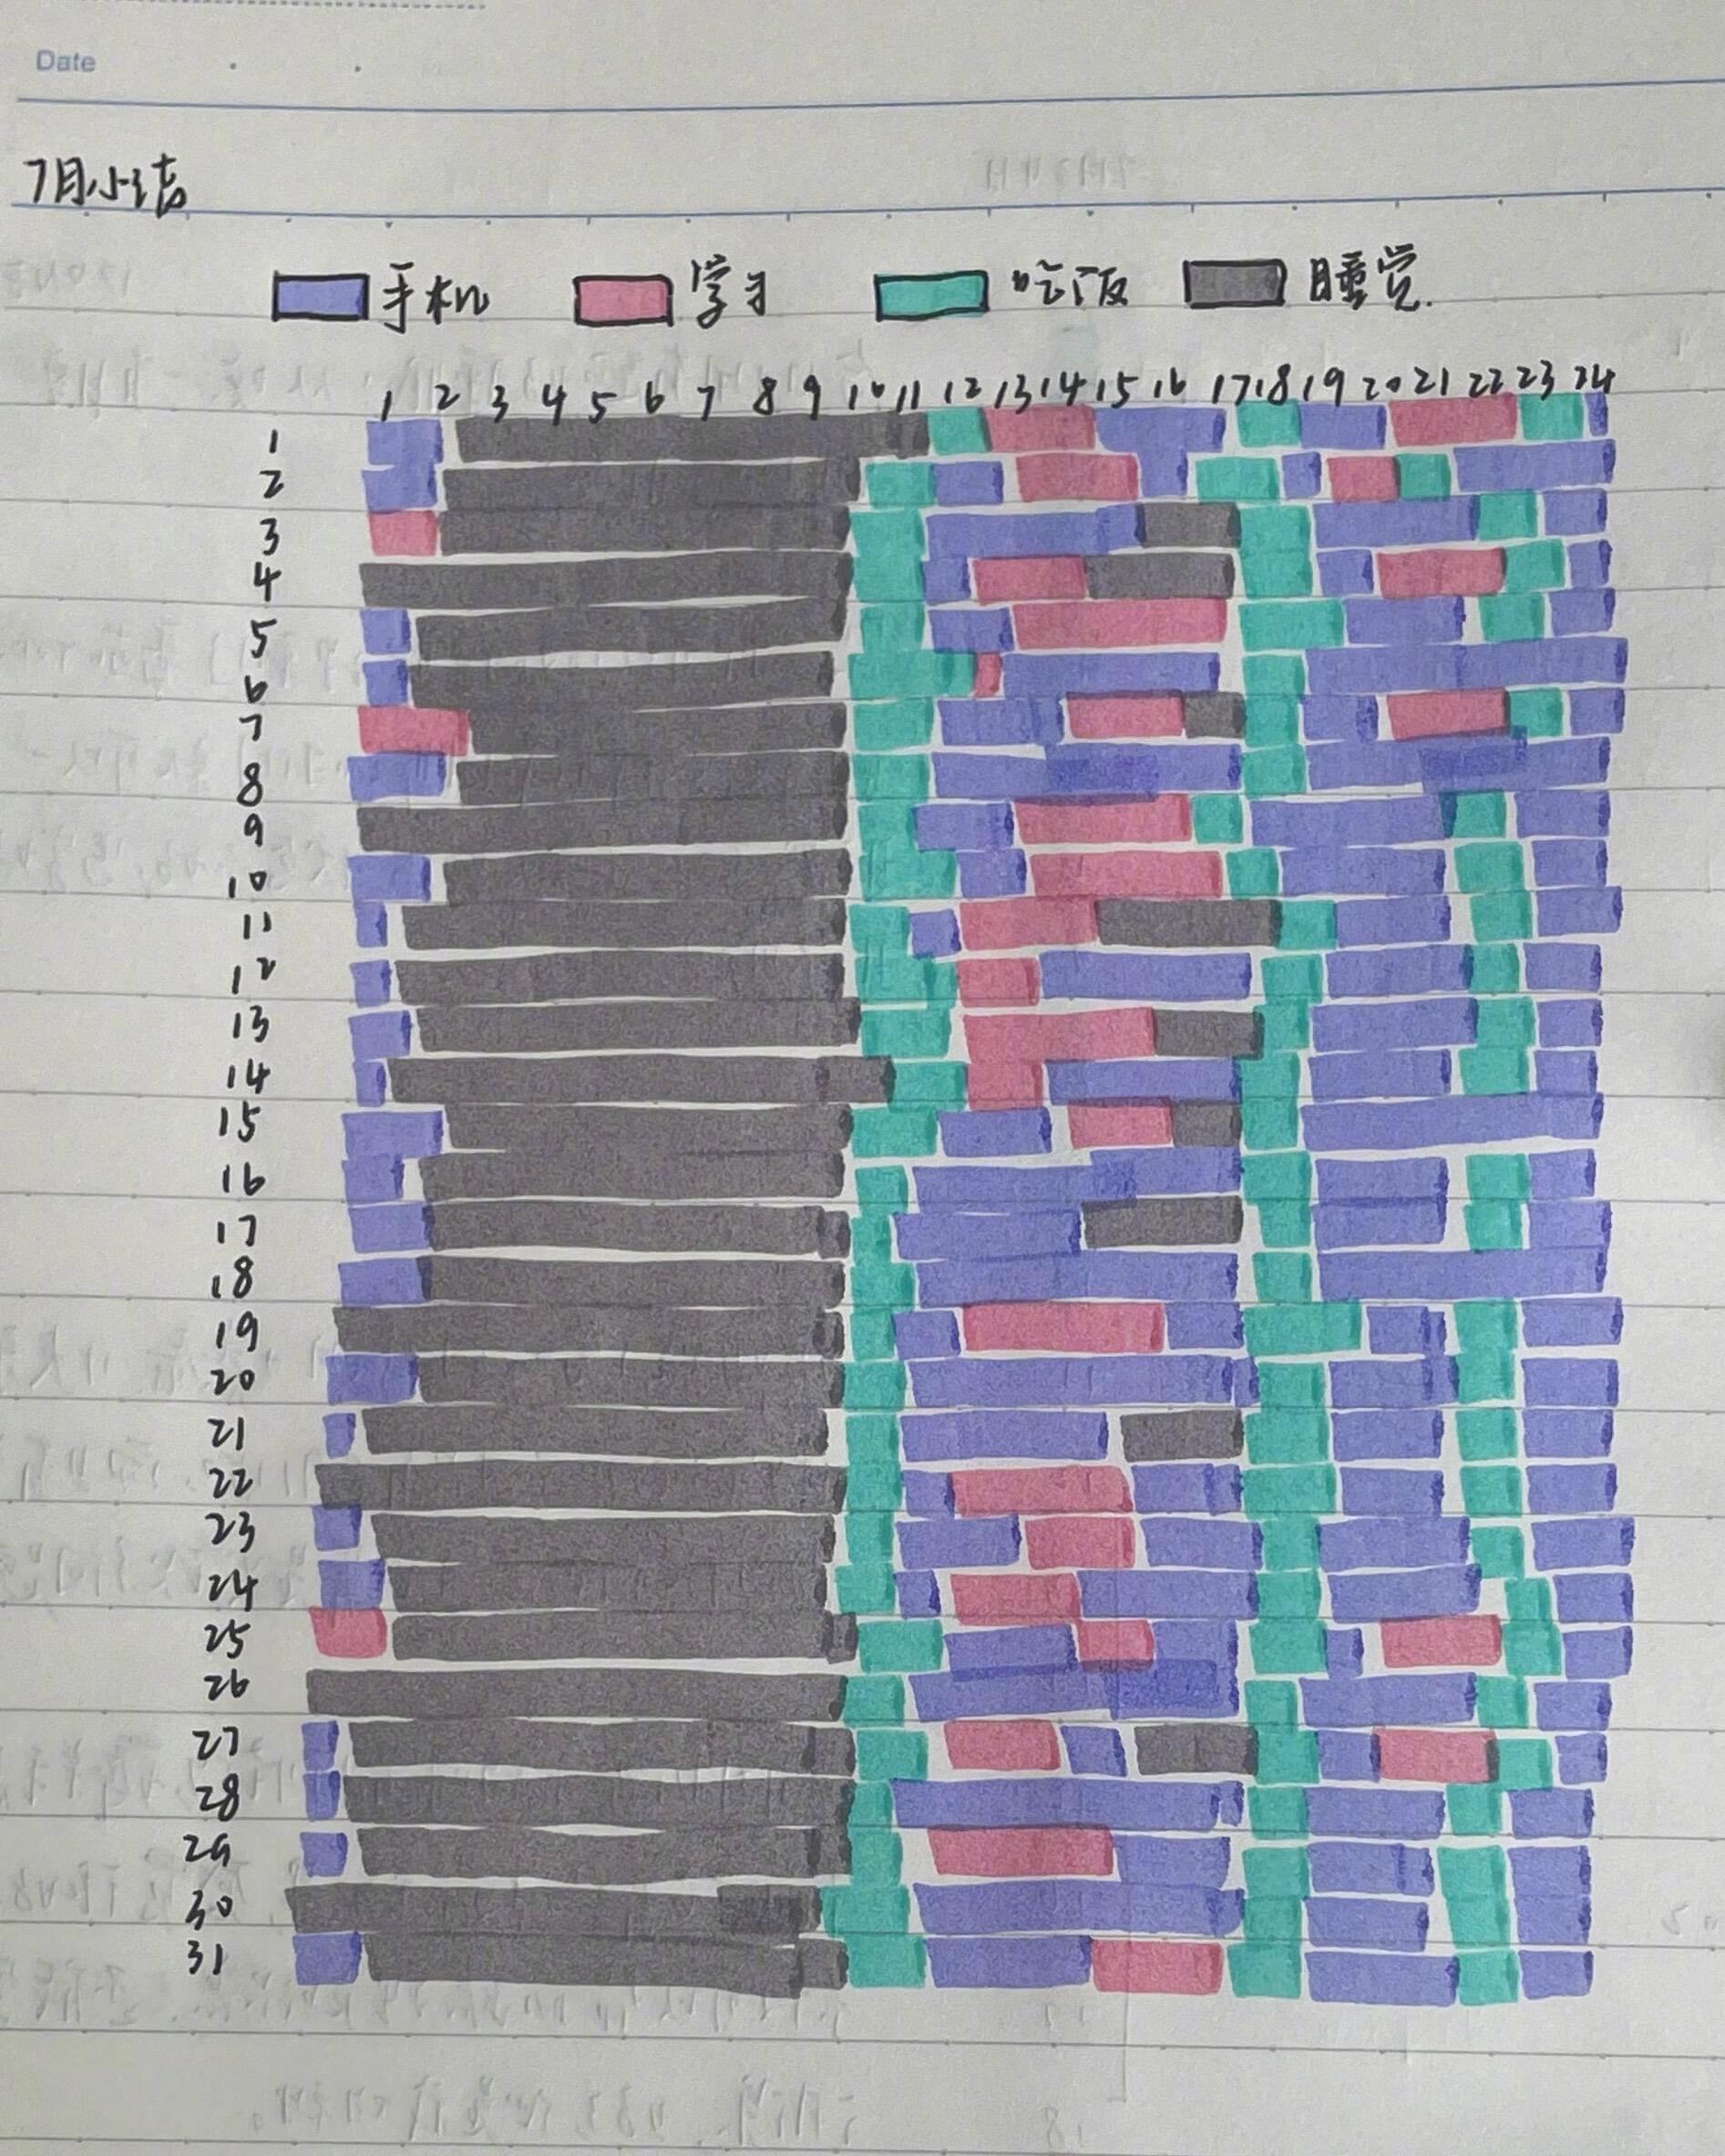 Date
7月小结
手机 学习 吃饭 睡觉.
1 2 3 4 5 6 7 8 9 10 11 12 13 14 15 16 17 18 19 20 21 22 23 24
1
2
3
4
5
6
7
8
9
10
11
12
13
14
15
16
17
18
19
20
21
22
23
24
25
26
27
28
29
30
31